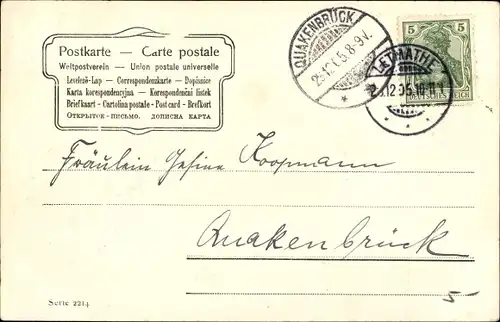 Postkarte — Carte postale
Weltpostverein — Union postale universelle
Levelező-Lap — Correspondenzkarte — Dopisnice
Karta korespondencyjna — Korespondenční lístek
Briefkaart - Cartolina postale - Post card - Brefkort
ОТКРЫТОЕ - ПИСЬМО. ДОПИСНА КАРТА
QUAKENBRÜCK
5.8-9V.
5 5
LETMATHE
12.05.10
Fräulein Gesine Koopmann
Quakenbrück
5
Serie 2214